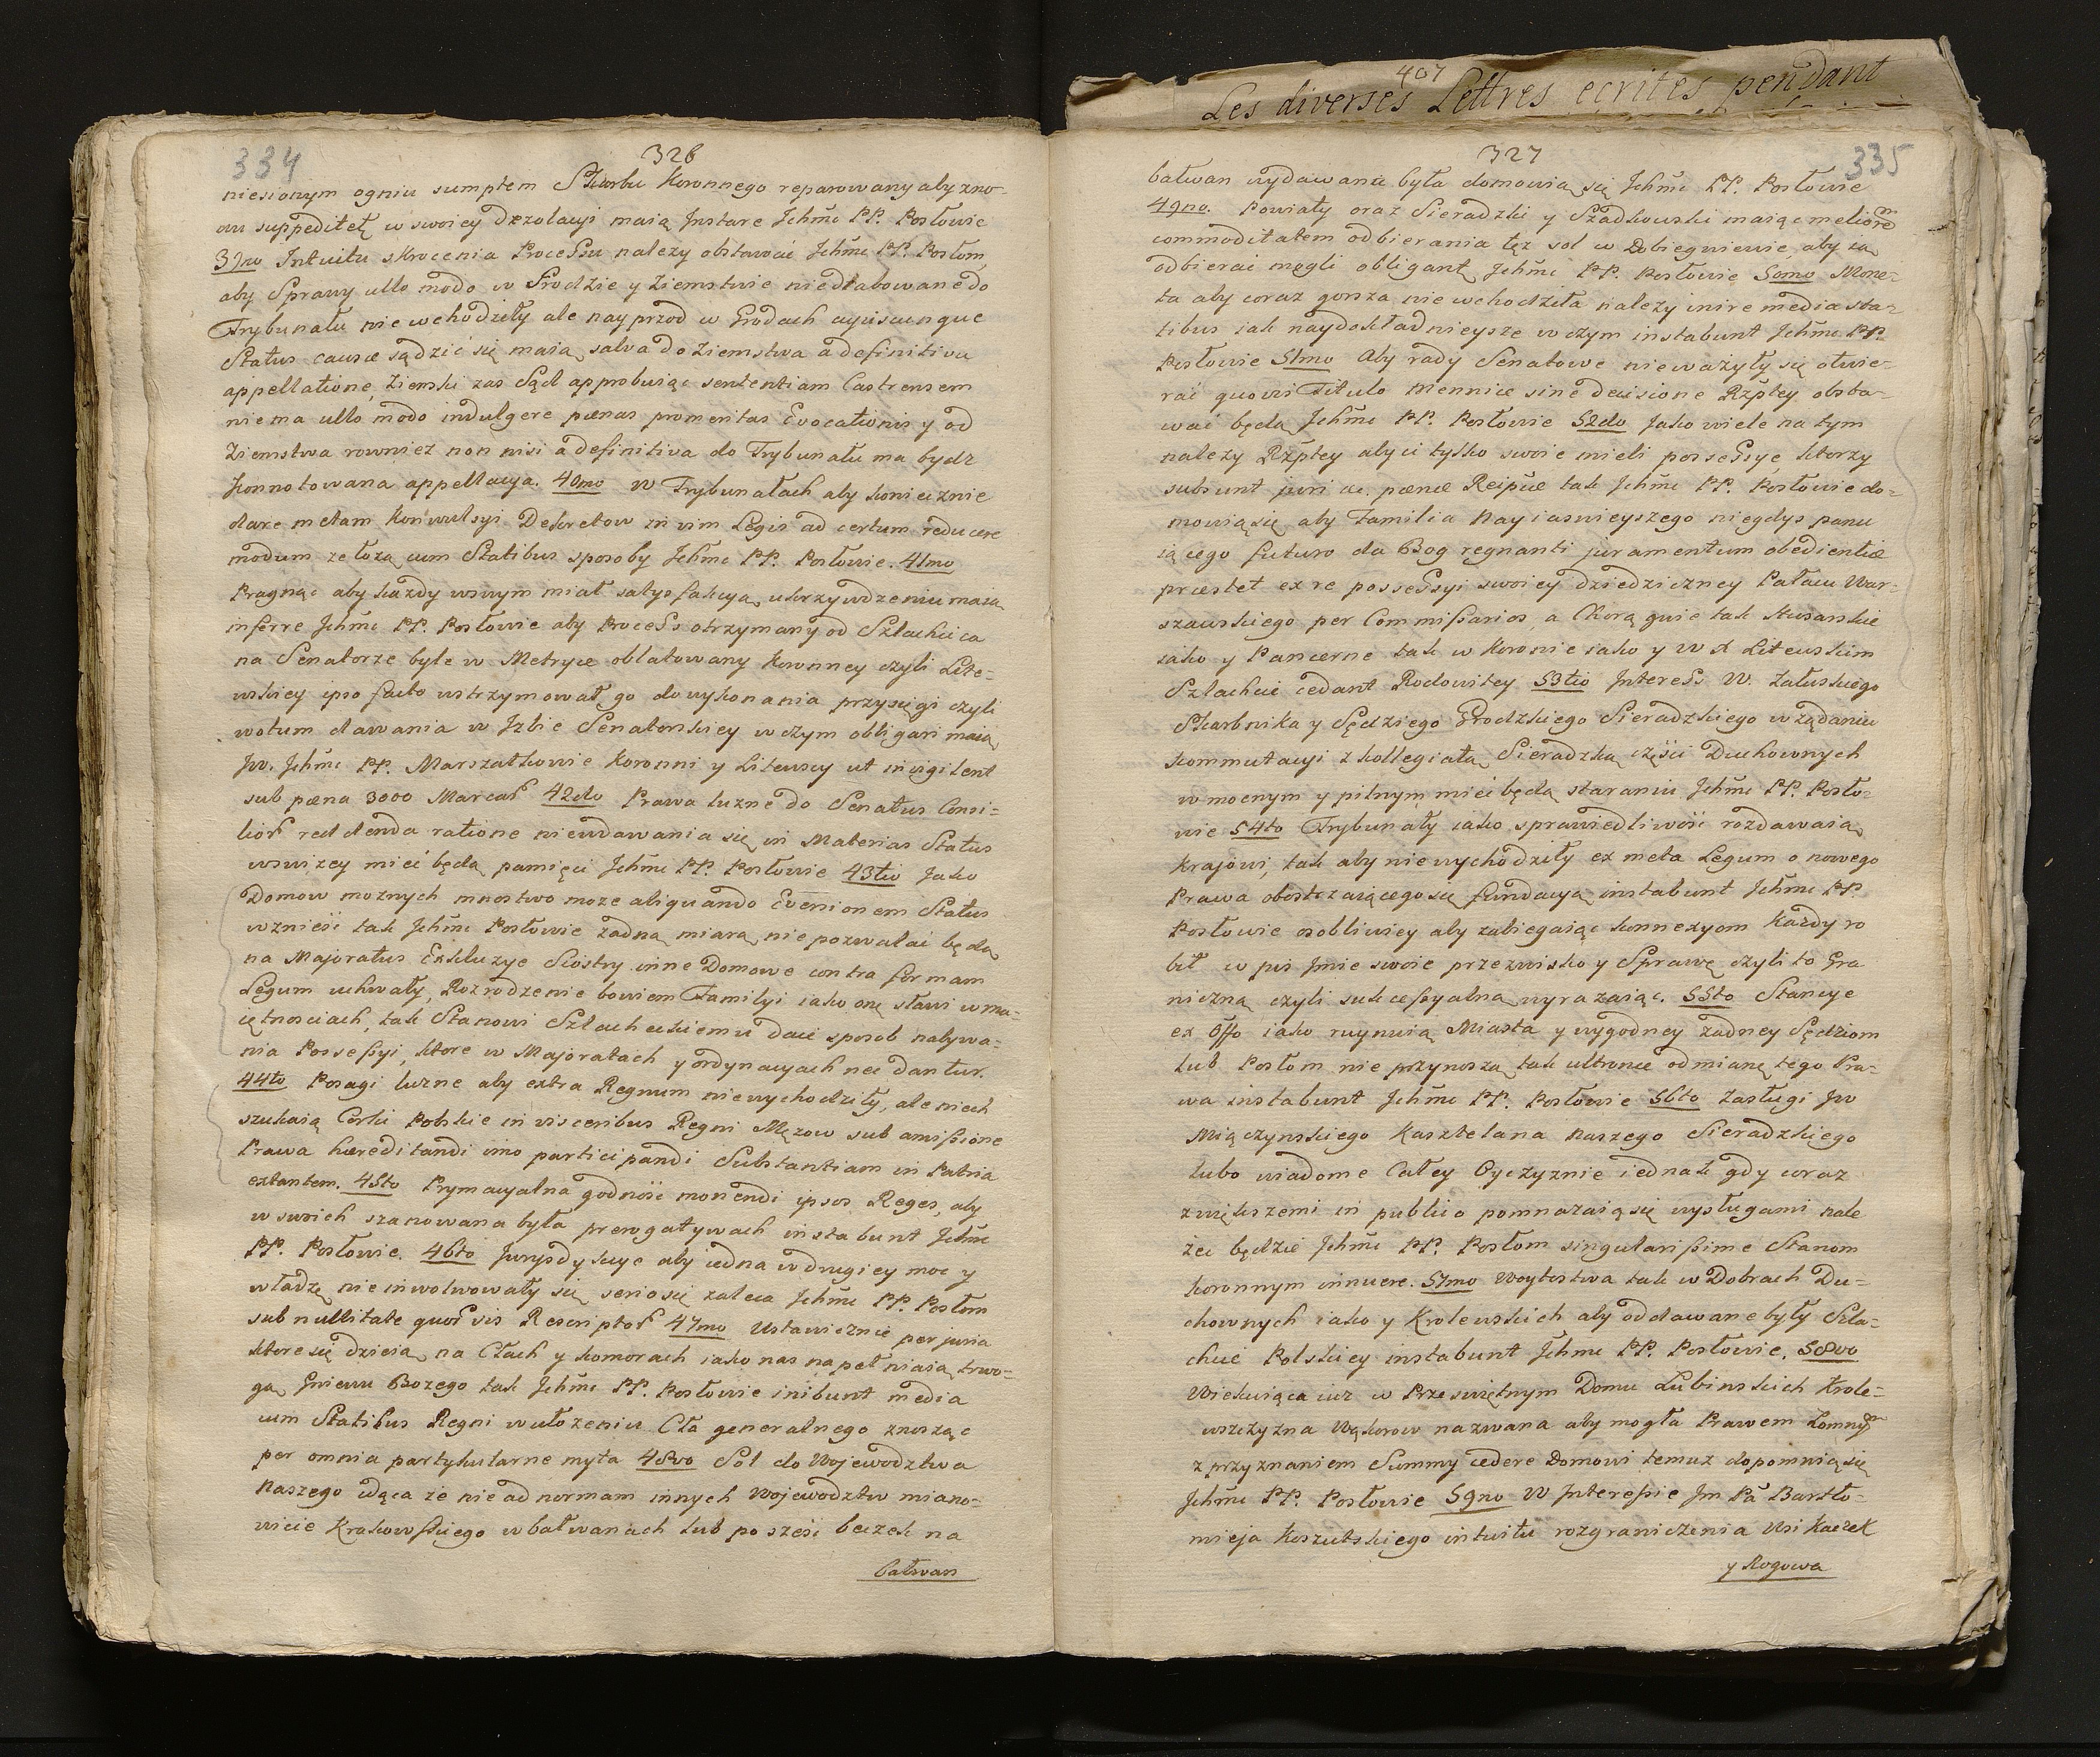 334
326
niesionym ogniu sumptem Skarbu Koronnego reparowany aby zno-
wu suppeditet w swoiey dezolacyi maią Instare Jchmć PP. Posłowie
39no Intuitu skrocenia Processu nalezy obstawać Jchmć PP. Posłom,
aby Sprawy ullo modo w Grodzie y Ziemstwie niedłabowane do
Trybunału nie wchodziły ale nayprzod w Grodach cujuscunque
Status causæ sądzić się maią, salva do Ziemstwa a definitiva
appellatione, Ziemski zas Sąd approbuiąc sententiam Castrensem
niema ullo modo indulgere pænas promeritas Evocationis y od
Ziemstwa rowniez non nisi a definitiva do Trybunału ma bydz
konnotowana appellacya. 40mo w Trybunałach aby koniecznie
dare metam Konwulsyi Dekretow in vim Legis ad certum reducere
modum ze łozą cum Statibus sposoby Jchmć PP. Posłowie. 41mo
Pragnąc aby kazdy wswym miał satysfakcyą ukrzywdzeniu maią
inferre Jchmć PP. Posłowie aby Process otrzymany od Szlachcica
na Senatorze byle w Metryce oblatowany Koronney czyli Lite-
wskiey ipso facto wstrzymował go do wykonania przysięgi czyli
wotum dawania w Izbie Senatorskiey w czym obligari maią
Jw. Jchmć PP. Marszałkowie Koronni y Litewscy ut invigilent
sub pæna 3000 Marcar 42do Prawa luzne do Senatus Consi-
lior reddenda ratione niewdawania się in Materias Status
wswizey mieć będą pamięci Jchmć PP. Posłowie 43tio Jako
Domow moznych mnostwo moze aliquando Eversionem Status
wznieść tak Jchmć Posłowie zadną miarą niepozwalać będą
na Majoratus Exkluzye Siostry inne Domowe contra formam
Legum uchwały, Rozrodzenie bowiem Familyi iako one stawi w ma-
iętnosciach, tak Stanowi Szlacheckiemu daie sposob nabywa-
nia Possessyi, ktore w Majoratach y ordynacyach nec dantur.
44to Posagi luzne aby extra Regnum niewychodziły, ale niech
szukaią Corki Polskie in visceribus Regni Męzow sub amissione
Prawa hæreditandi imo participandi Substantiam in Patria
extantem. 45to Prymacyalna godność monendi ipsos Reges, aby
w swoich szanowana była prerogatywach instabunt Jchmć
PP. Posłowie. 46to Jurysdykcye aby iedna w drugiey moc y
władzę nie inwolwowały się serio się zaleca Jchmć PP. Posłom
sub nullitate quor vis Rescriptor 47mo Ustawicznie perjuria
ktore się dzieią na Cłach y komorach iako nas napełniaią trwo-
gą Gniewu Bozego tak Jchmć PP. Posłowie inibunt media
cum Statibus Regni w ułozeniu Cła generalnego znosząc
per omnia partykularne myta 48vo Sól do Wojewodztwa
Naszego idąca ze nie ad normam innych Wojewodztw miano-
wicie Krakowskiego w bałwanach lub po sześć beczek na
bałwan
407
Les diverses Lettres ecrites pendant
327
335
bałwan wydawana była domowią się Jchmć PP. Posłowie
49no. Powiaty oraz Sieradzki y Szadkowski maiąc meliorem
commoditatem odbierania tęz sol w Dobiegniewie, aby ią
odbierać mogli obligant Jchmć PP. Posłowie 50mo Mone-
ta aby coraz gorsza nie wchodziła nalezy inire media sta-
tibus iak naydokładnieysze w czym instabunt Jchmć PP.
Posłowie 51mo Aby rady Senatowe niewazyły się otwie-
rać quovis Titulo Mennice sine decisione Rzptey obsta-
wać będą Jchmć PP. Posłowie 52do Jako wiele na tym
nalezy Rzptey aby ci tylko swoie mieli possessye, ktorzy
subsunt juri ac pænæ Reipcæ tak Jchmć PP. Posłowie do-
mowią się aby Familia Nayiasnieyszego niegdys panu
iącego futuro da Bog regnanti juramentum obedientiæ
præstet ex re possessyi swoiey dziedziczney Pałacu War-
szawskiego per Commissarios, a Chorągwie tak Husarskie
iako y Pancerne tak w Koronie iako y W X Litewskim
Szlachcie cedant Rodowitey 53tio Interess W. Załuskiego
Skarbnika y Sędziego Grodzkiego Sieradzkiego w ządaniu
kommutacyi z kollegiatą Sieradzką części Duchownych
w mocnym y pilnym mieć będą staraniu Jchmć PP. Posło-
wie 54to Trybunały iako sprawiedliwość rozdawaią
Krajowi, tak aby niewychodziły ex meta Legum o nowego
Prawa obostrzaiącego się fundacyą instabunt Jchmć PP.
Posłowie osobliwiey aby zabiegaiąc konnexyom Kazdy ro
bił w pis Jmie swoie przezwisko y Sprawę czyli to Gra
niczną czyli sukcessyalną wyrazaiąc. 55to Stancye
ex Offo iako ruynuią Miasta y wygodney zadney Sędziom
lub Posłom nie przynoszą tak ultronee odmianę tego Pra-
wa instabunt Jchmć PP. Posłowie 56to Zasługi Jw
Miączynskiego Kasztelana Naszego Sieradzkiego
lubo wiadome Całey Oyczyznie iednak gdy coraz
zwiększemi in publico pomnazaią się wysługami nale
żeć będzie Jchmć PP. Posłom singularissime Stanom
koronnym innuere. 57mo Woytostwa tak w Dobrach Du-
chownych iako y Krolewskich aby oddawane były Szla-
chcie Polskiey instabunt Jchmć PP. Posłowie. 58vo
Wiekuiąca iuz w Przeswiętnym Domu Lubinskich Krole-
wszczyzna Wąkorow nazwana aby mogła Prawem Lomnym
z przyznaniem Summy cedere Domowi temuz dopomnią się
Jchmć PP. Posłowie 59no W Interessie Jm Pa Bartło-
mieja Koszutskiego intuitu rozgraniczenia Wsi Kaczek
y Rogowa